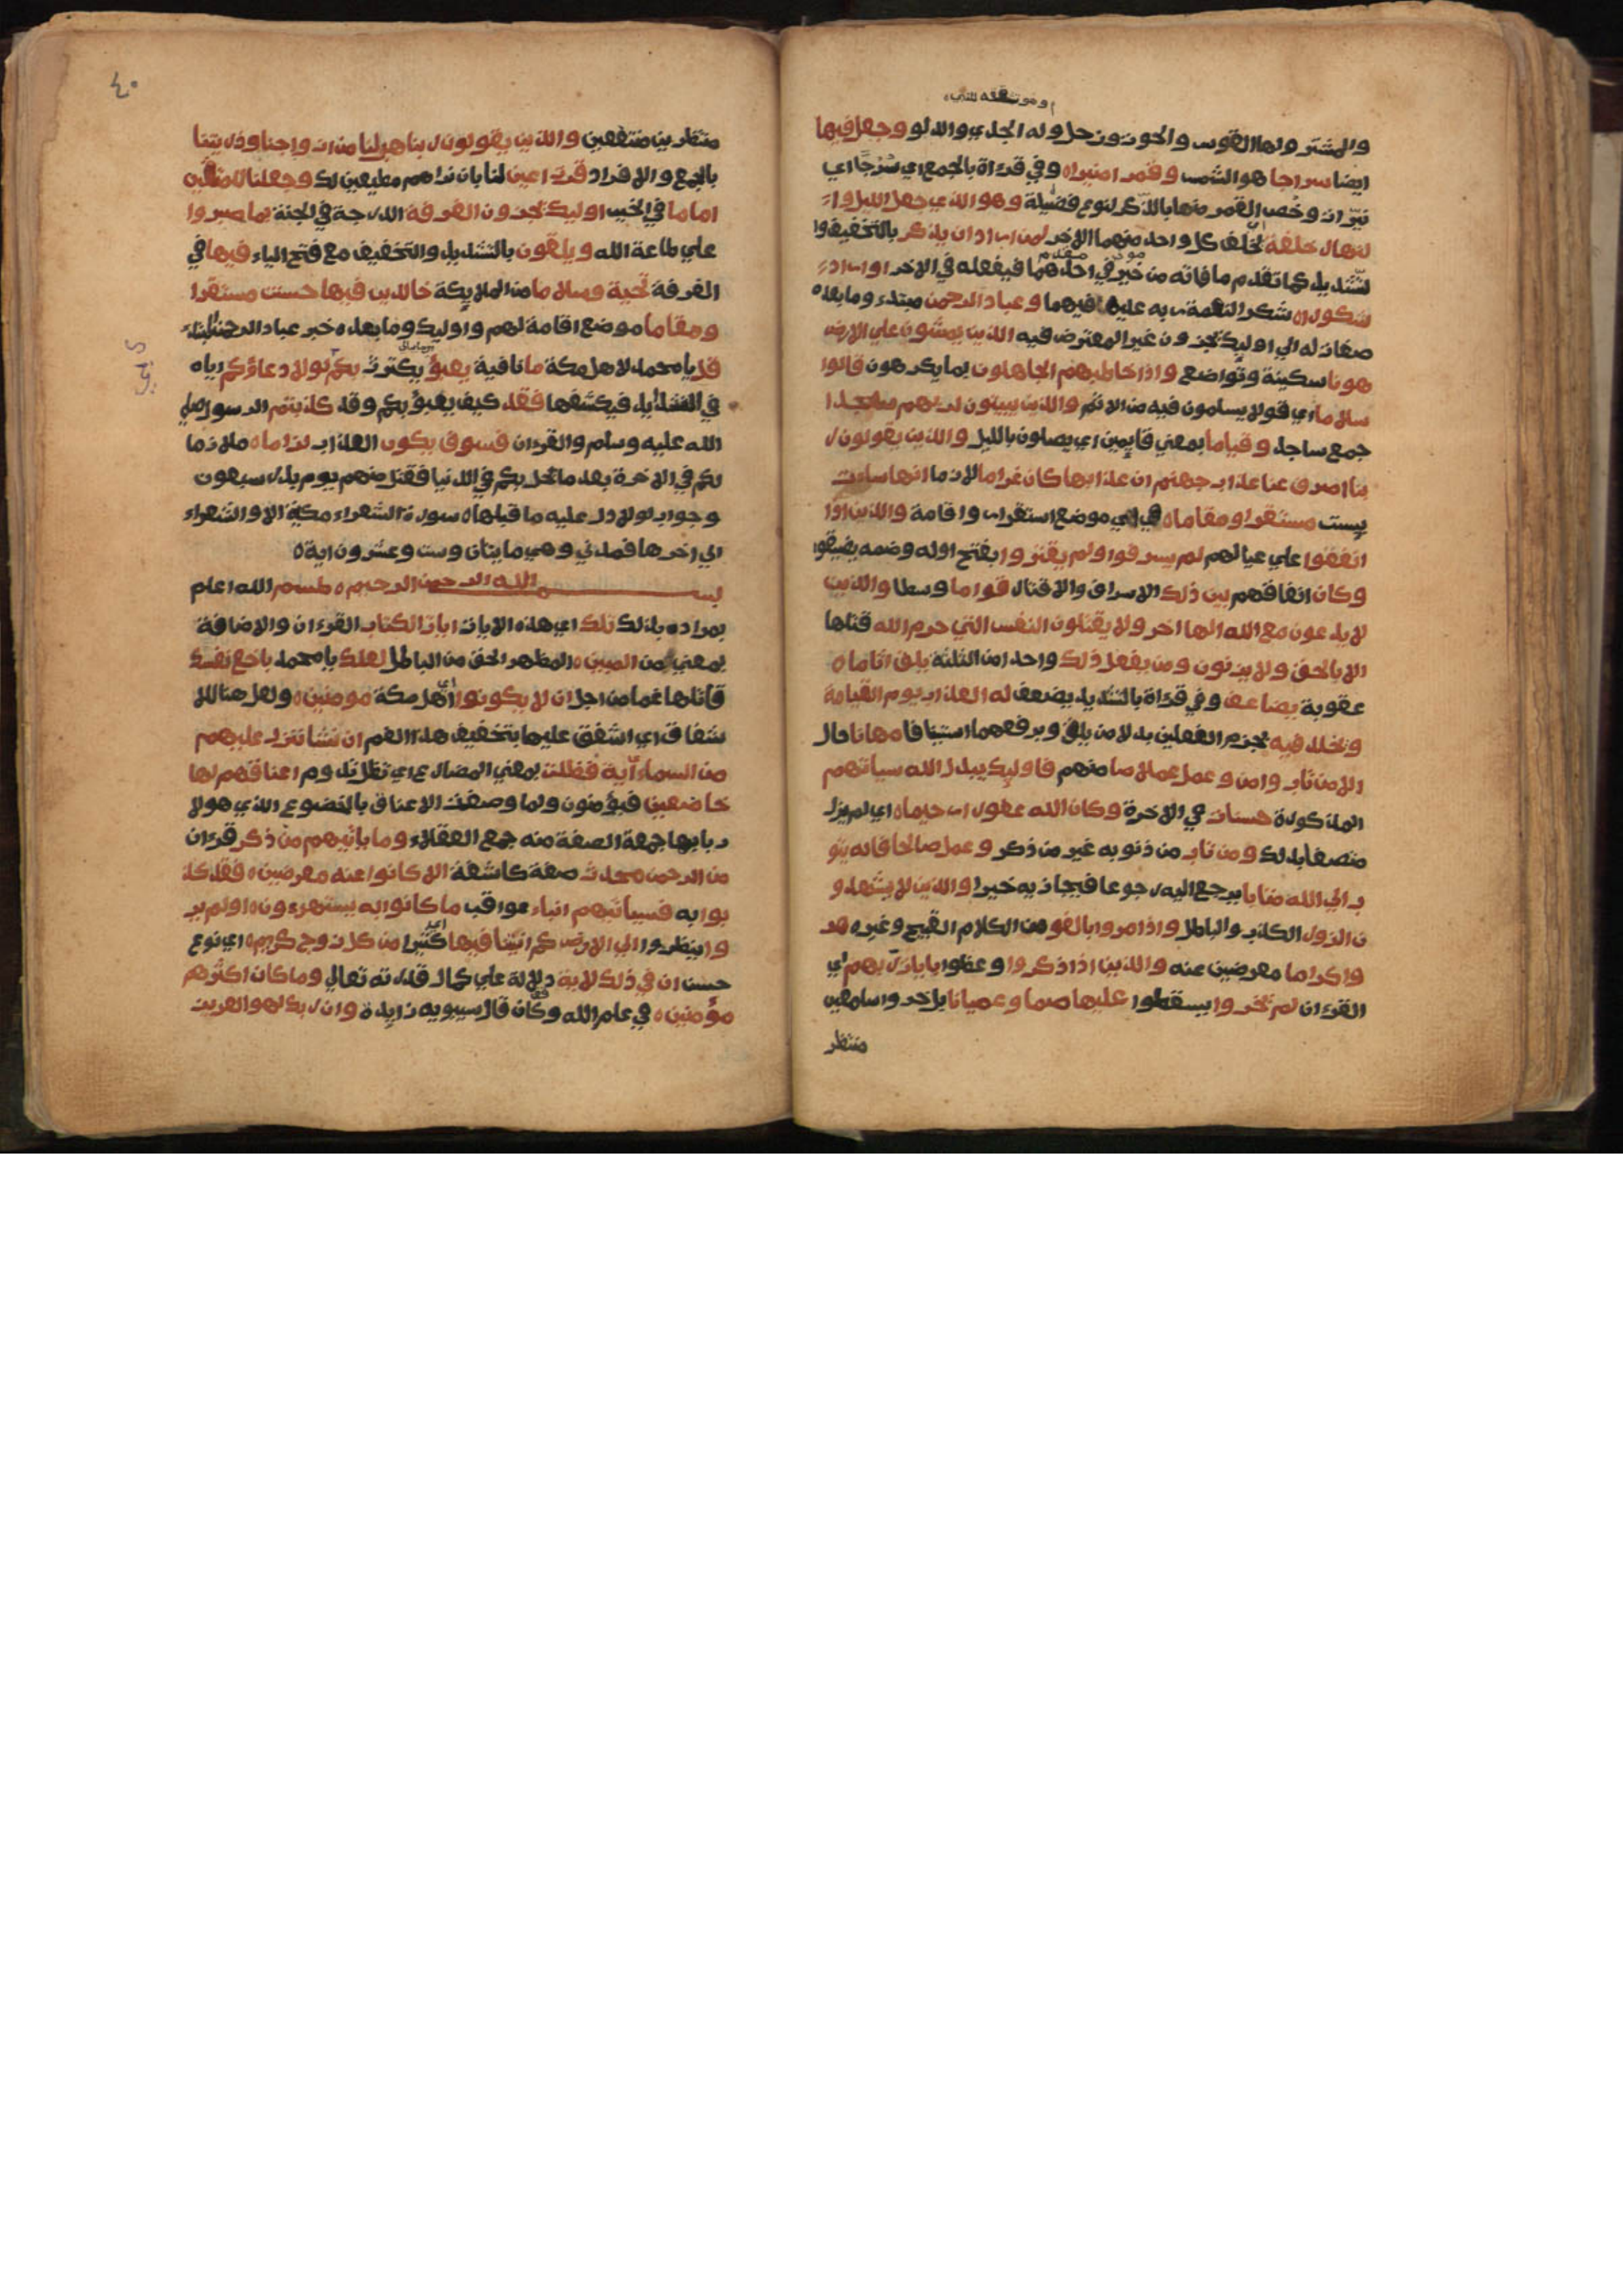 والمشتر ولها القوس والحوت وزحل وله الجدي والدلو وجعل فيها
ايضا سراجا هو الشمس وقمرا منيرا ه وفي قراة بالجمع اي سُرُجًا اي
نيّرات وخص القمر منها بالذكر لنوع فضيلة وهو الذي جعل الليل وا
لنهار خلفة يخلف كل واحد منهما الاخر لمن اراد ان يذكر بالتخفيف وا
لتشديد كما تقدم ما فاته من خير في احدهما فيفعله في الاخر او اراد
شكورا ه شكر النعمة ربه عليه فيهما وعباد الرحمن مبتدء وما بعده
صفات له الي اوليك يجزون غير المعترض فيه الذين يمشون علي الارض
هونا سكينة وتواضع واذا خاطبهم الجاهلون بما يكرهون قالوا
سلاما اي قولا يسلمون فيه من الاثم والذين يبيتون لربهم سجدا
جمع ساجد وقياما بمعني قايمين اي يصلون بالليل والذين يقولون ر
بنا اصرف عنا عذاب جهنم ان عذابها كان غراما لازما انها ساءت
بيست مستقرا ومقاما ه هي اي موضع استقرار واقامة والذين اذا
انفقوا علي عيالهم لم يسرفوا ولم يقتروا بفتح اوله وضمه يضيقوا
وكان انفاقهم بين ذلك الاسراف والاقتار قواما وسطا والذين
لا يدعون مع الله الها اخر ولا يقتلون النفس التي حرم الله قتلها
الا بالحق ولا يزنون ومن يفعل ذلك واحدا من الثلثة يلق اثاما ه
عقوبة يضاعف وفي قراة بالتشديد يضعف له العذاب يوم القيامة
ويخلد فيه بجزم الفعلين بدلا من يلق وبرفعهما استينافا مهانا حال
الا من تاب وامن وعمل عملا صا منهم فاوليك يبدل الله سياتهم
المذكورة حسنات في الاخرة وكان الله غفورا رحيما ه اي لم يزل
متصفا بذلك ومن تاب من ذنوبه غير من ذكر وعمل صالحا فانه يتو
ب الي الله متابا يرجع اليه رجوعا فيجازيه خيرا والذين لا يشهدو
ن الزور الكذب والباطل واذا مروا بالغو من الكلام القبيح وغيره مر
واكراما معرضين عنه والذين اذا ذكروا وعظوا بايات ربهم اي
القرءان لم يخروا يسقطوا عليها صما وعميانا بل خروا سامعين
منتظر
٤٠
منتظرين منتفعين والذين يقولون ربنا هب لنا من ازواجنا وذريتنا
بالجمع والافراد قرة اعين لنا بان نراهم مطيعين لك وجعلنا للمتقين
اماما في الخير اوليك يجزون الغرفة الدرجة في الجنة بما صبروا
علي طاعة الله ويلقون بالتشديد والتخفيف مع فتح الياء فيها في
الغرفة تحية وسلاما من الملايكة خالدين فيها حسنت مستقرا
ومقاما موضع اقامة لهم واوليك وما بعده خبر عباد الرحمن المبتداء
قل يا محمد لاهل مكة ما نافية يعبؤ يكترث بكم لولا دعاؤكم اياه
في الشدايد فيكشفها فقد كيف يعبؤ بكم وقد كذبتم الرسول صلي
الله عليه وسلم والقرءان فسوف يكون العذاب لزاما ه ملازما
لكم في الاخرة بعد ما يحل بكم في الدنيا فقتل منهم يوم بدر سبعون
وجواب لولا دل عليه ما قبلها ه سورة الشعراء مكية الا والشعراء
الي اخرها فمدني وهي مايتان وست وعشرون اية ه
بسم الله الرحمن الرحيم ه طسم الله اعلم
بمراده بذلك تلك اي هذه الايات ايات الكتاب القرءان والاضافة
بمعني من المبين ه المظهر الحق من الباطل لعلك يا محمد باخع نفسك
قاتلها غما من اجل ان لا يكونوا اي اهل مكة مومنين ه ولعل هنا للا
شفاق اي اشفق عليها بتخفيف هذا الغم ان نشا ننزل عليهم
من السماء آية فظلت بمعني المضارع اي تظل تدوم اعناقهم لها
خاضعين فيؤمنون ولما وصفت الاعناق بالخضوع الذي هو لا
ربابها جمعة الصفة منه جمع العقلاء وما ياتيهم من ذكر قرءان
من الرحمن محدث صفة كاشفة الا كانوا عنه معرضين ه فقد كذ
بوا به فسياتيهم انباء عواقب ما كانوا به يستهزءون ه اولم ير
وا ينظروا الي الارض كم انبتنا فيها اي كثيرا من كل زوج كريم ه اي نوع
حسن ان في ذلك لاية دلالة علي كمال قدرته تعالي وما كان اكثرهم
مؤمنين ه في علم الله وكان قال سيبويه زايدة وان ربك لهو العزيز